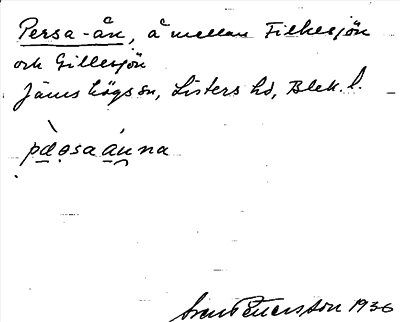 Persa-ån, å mellan Filkesjön
och Gillesjön
Jämshögs sn, Listers hd, Blek. l.
pæsaånna
Sven Petersson 1936